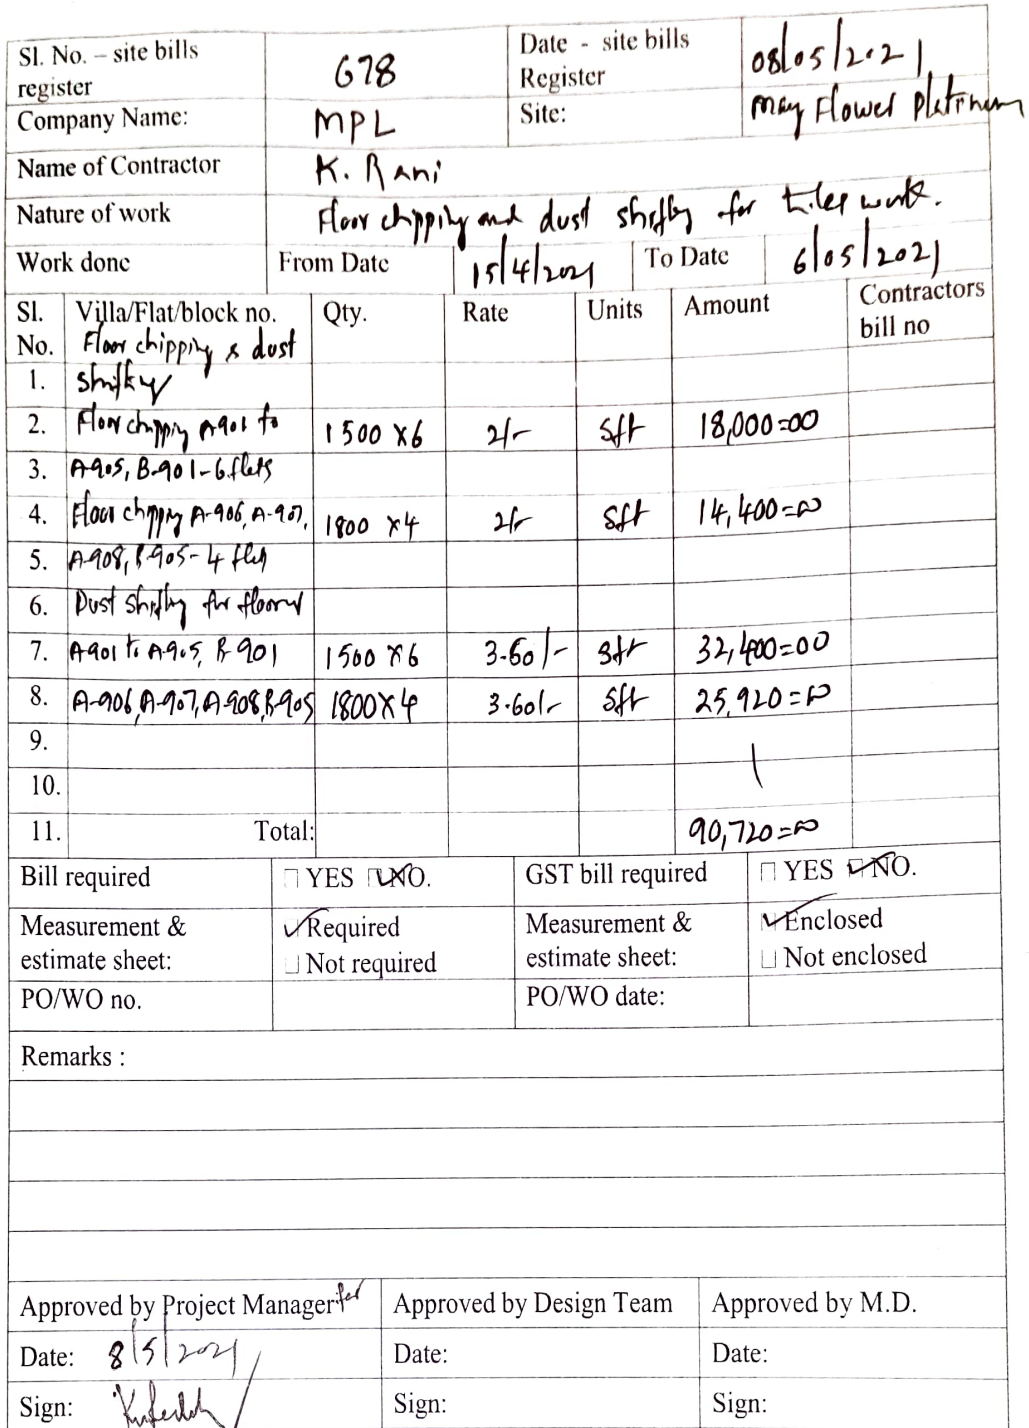 Sl. No. – site bills register 678 Date - site bills Register 08/05/2021
Company Name: MPL Site: May Flower Platinum
Name of Contractor K. Rani
Nature of work Floor chipping and dust shifting for tiles work.
Work done From Date 15/4/2021 To Date 6/05/2021
Sl. No. Villa/Flat/block no. Qty. Rate Units Amount Contractors bill no
Floor chipping & dust
1. shifting
2. Floor chipping A901 to 1500 x6 2/- sft 18,000=00
3. A-905, B-901-6 flats
4. Floor chipping A-906, A-907, 1800 x4 2/- sft 14,400=00
5. A-908, B-905-4 flats
6. Dust shifting for floors
7. A-901 to A-905, B-901 1500 x6 3.60/- sft 32,400=00
8. A-906, A-907, A-908, B-905 1800x4 3.60/- sft 25,920=00
9.
10.
11. Total: 90,720=00
Bill required YES NO. GST bill required YES NO.
Measurement & estimate sheet: Required Measurement & estimate sheet: Enclosed
Not required Not enclosed
PO/WO no. PO/WO date:
Remarks :
Approved by Project Manager for Approved by Design Team Approved by M.D.
Date: 8/5/2021 Date: Date:
Sign: Sign: Sign: